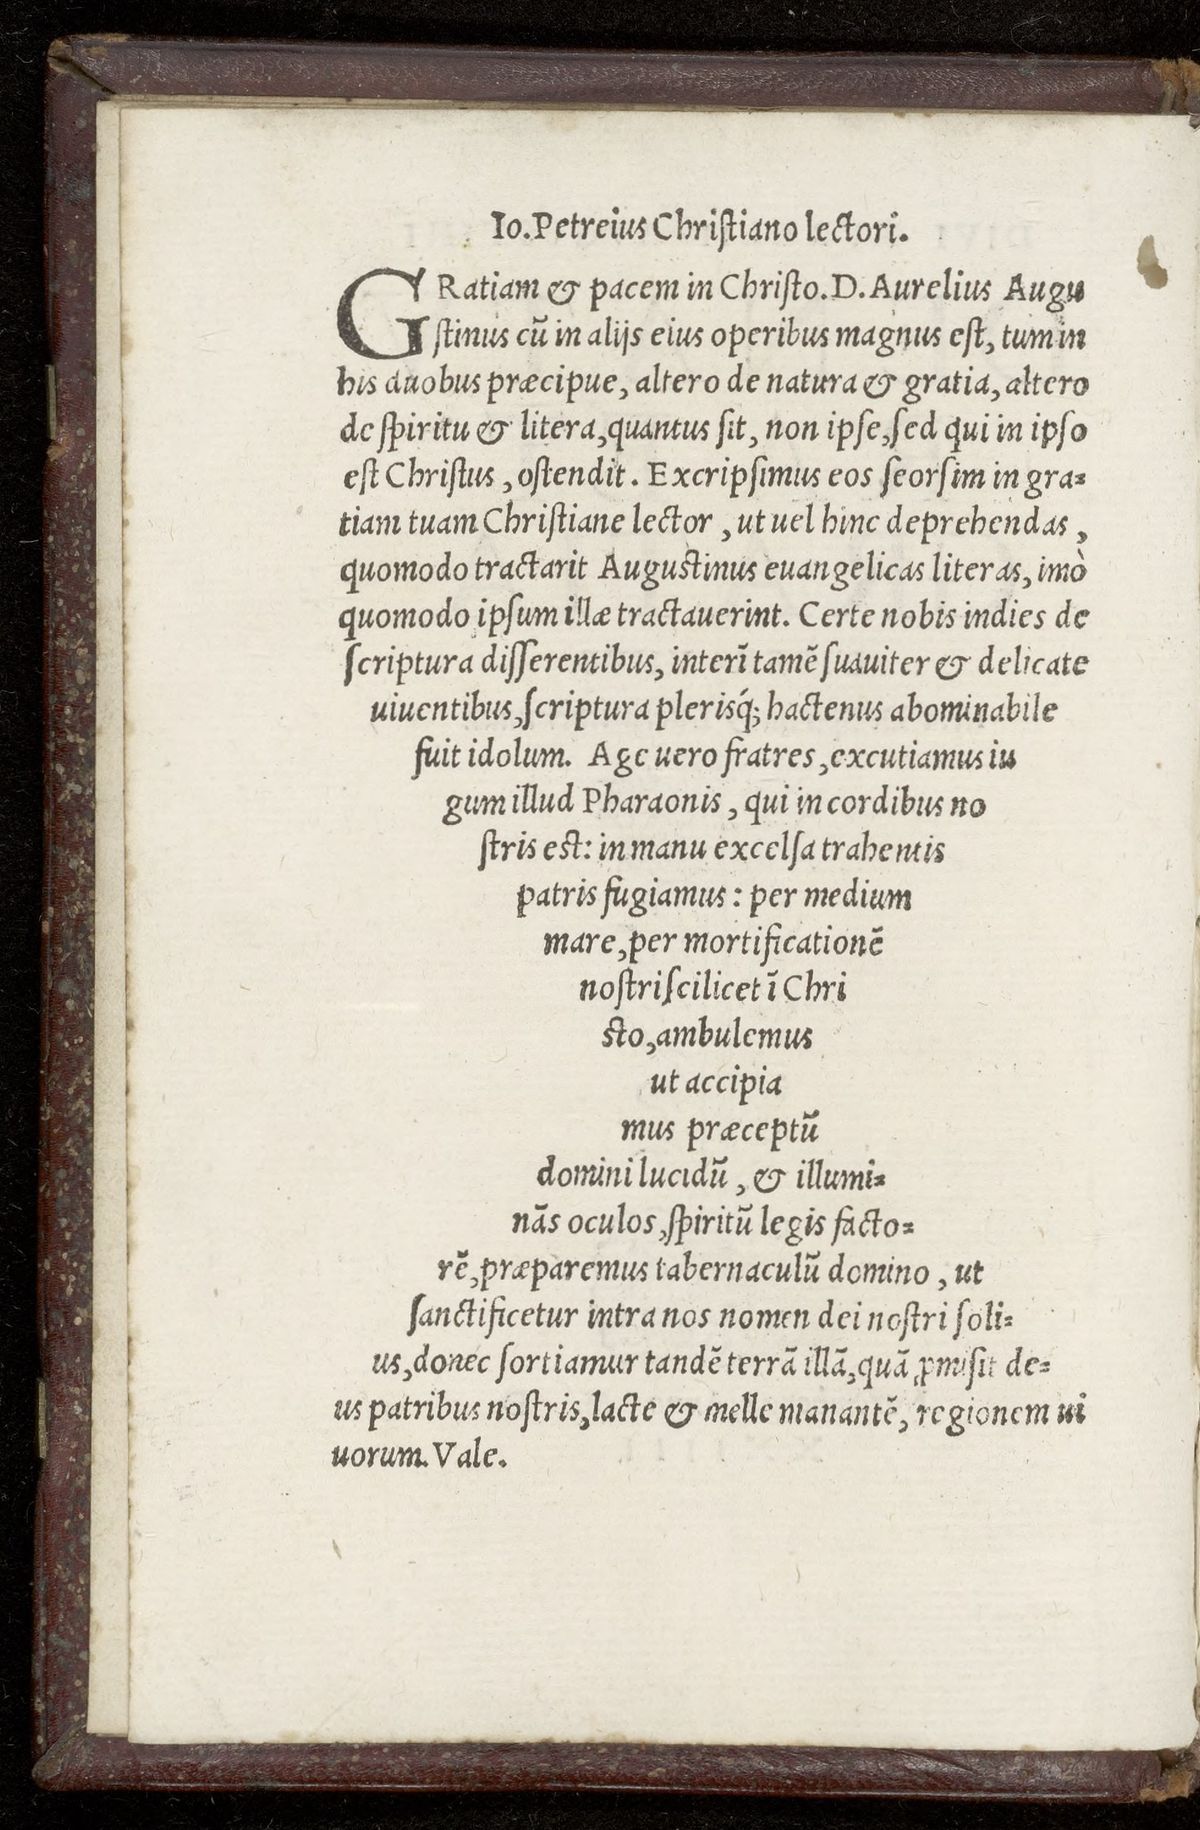 Io. Petreius Christiano lectori.
GRatiam & pacem in Christo. D. Aurelius Augu
stinus cū in alijs eius operibus magnus est, tum in
his duobus præcipue, altero de natura & gratia, altero
de spiritu & litera, quantus sit, non ipse, sed qui in ipso
est Christus, ostendit. Excripsimus eos seorsim in gra=
tiam tuam Christiane lector, ut uel hinc deprehendas,
quomodo tractarit Augustinus euangelicas literas, imò
quomodo ipsum illæ tractauerint. Certe nobis indies de
scriptura disserentibus, interī tamē suauiter & delicate
uiuentibus, scriptura plerisq́; hactenus abominabile
fuit idolum. Age uero fratres, excutiamus iu
gum illud Pharaonis, qui in cordibus no
stris est: in manu excelsa trahentis
patris fugiamus: per medium
mare, per mortificationē
nostri scilicet ī Chri
sto, ambulemus
ut accipia
mus præceptū
domini lucidū, & illumi=
nās oculos, spiritū legis facto=
rē, præparemus tabernaculū domino, ut
sanctificetur intra nos nomen dei nostri soli=
us, donec sortiamur tandē terrā illā, quā ꝓmisit de=
us patribus nostris, lacte & melle manantē, regionem ui
uorum. Vale.